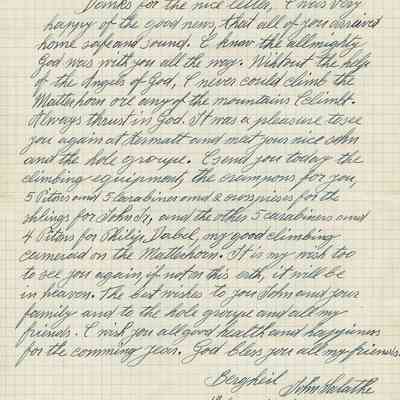 Thanks for the nice letter, I was very
happy of the good news, that all of you arrived
home safe and sound. I know the allmighty
God was with you all the way. Without the help
of the Angels of God, I never could climb the
Matterhorn ore any of the mountains I climbt.
Always thrust in God. It was a pleasure to see
you again at Zermatt and meet you nice sohn
and the hole groupe. I send you today the
climbing equipment, the crampons for you,
5 Pitons and 5 Carabiners and 2 crosspieses for the
shlings for John Jr, and the other 5 carabiners and
4 Pitons for Philip Dabel, my good climbing
cameraid on the Matterhorn. It is my wish too
to see you again, if not on this erth, it will be
in heaven. The best wishes to you John and your
family and to the hole groupe and all my
friends. I wish you all good health and happiness
for the comming year. God bless you all my friends.
Bergheil John Salathe